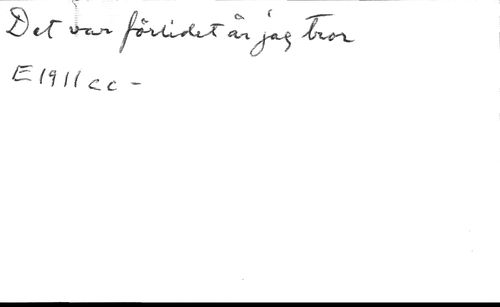 Det var förlidet år jag tror
E 1911 cc -